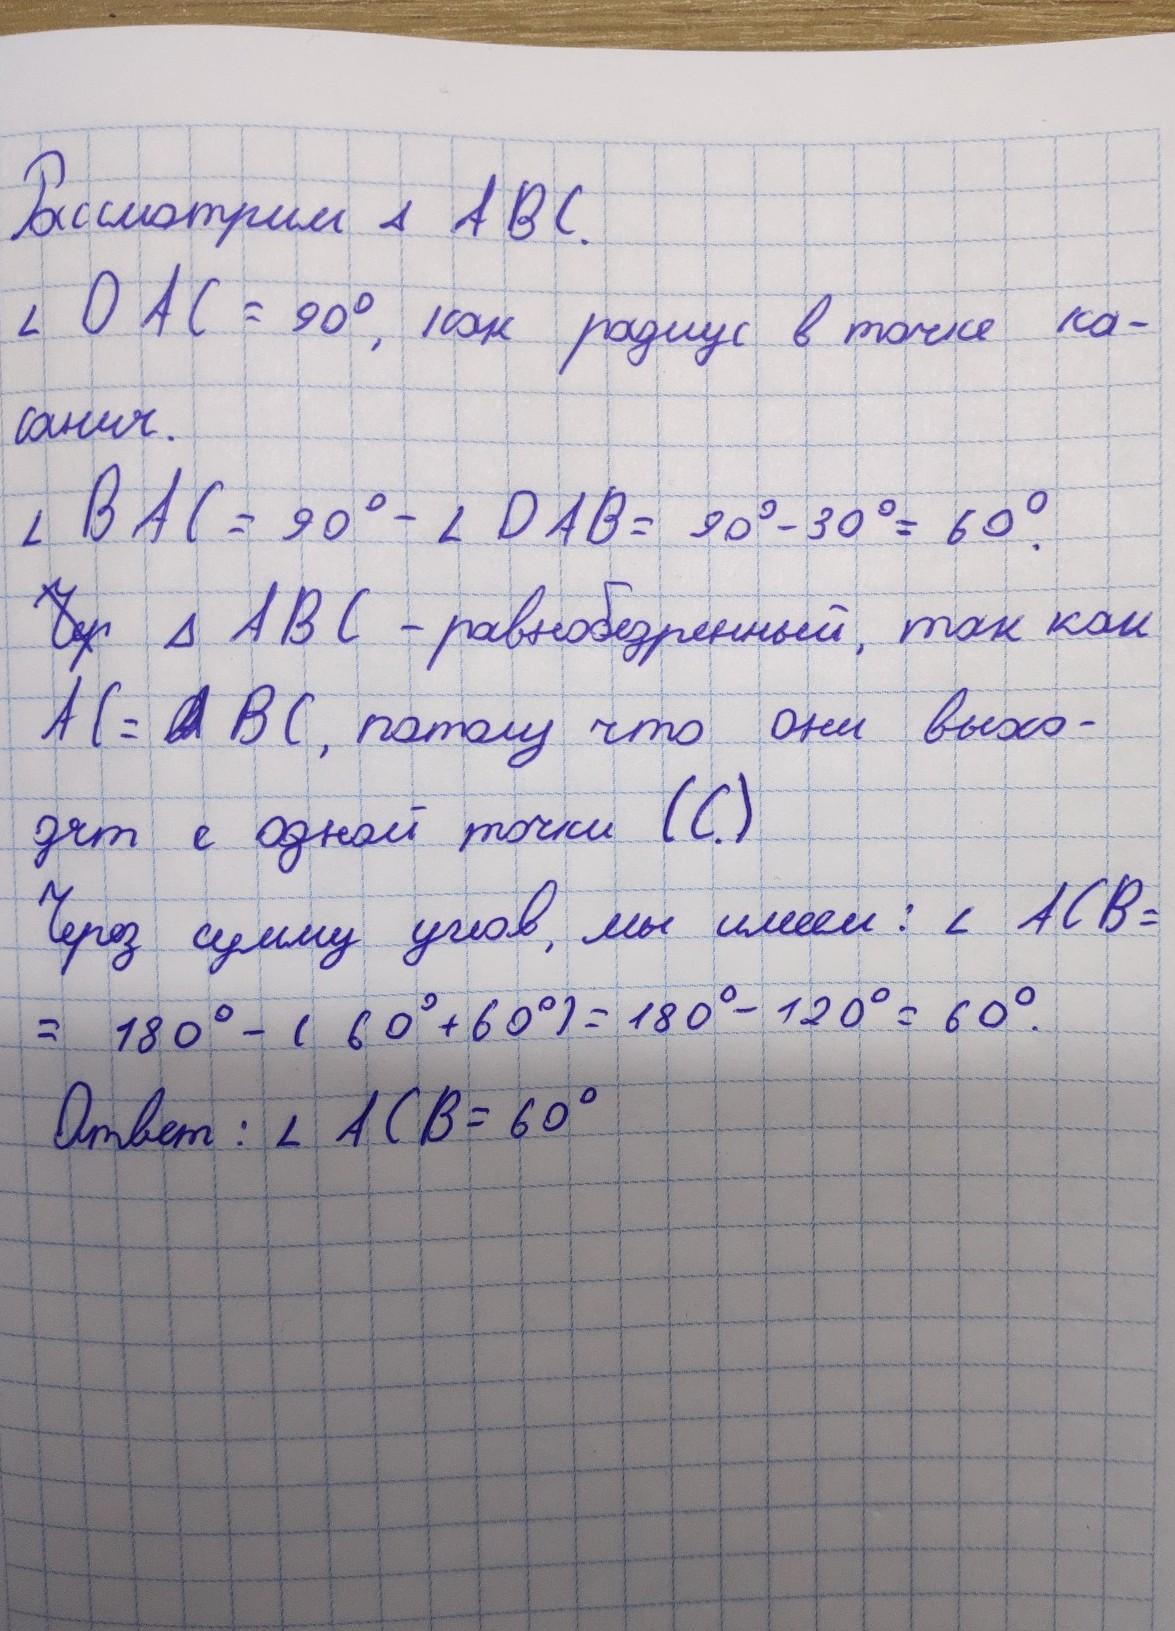 Рассмотрим Δ ABC.
∠ OAC = 90°, как радиус в точке ка-
сания.
∠ BAC = 90° - ∠ OAB = 90° - 30° = 60°.
Δ ABC - равнобедренный, так как
AC = BC, потому что они выхо-
дят с одной точки (C.)
Через сумму углов, мы имеем: ∠ ACB =
= 180° - ( 60° + 60°) = 180° - 120° = 60°.
Ответ: ∠ ACB = 60°